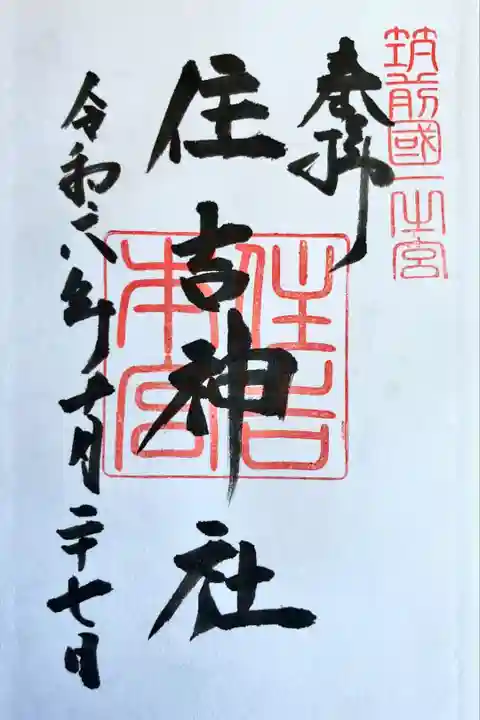 筑前國一之宮
奉拝
住吉神社
住吉
本宮
令和六年十月二十七日